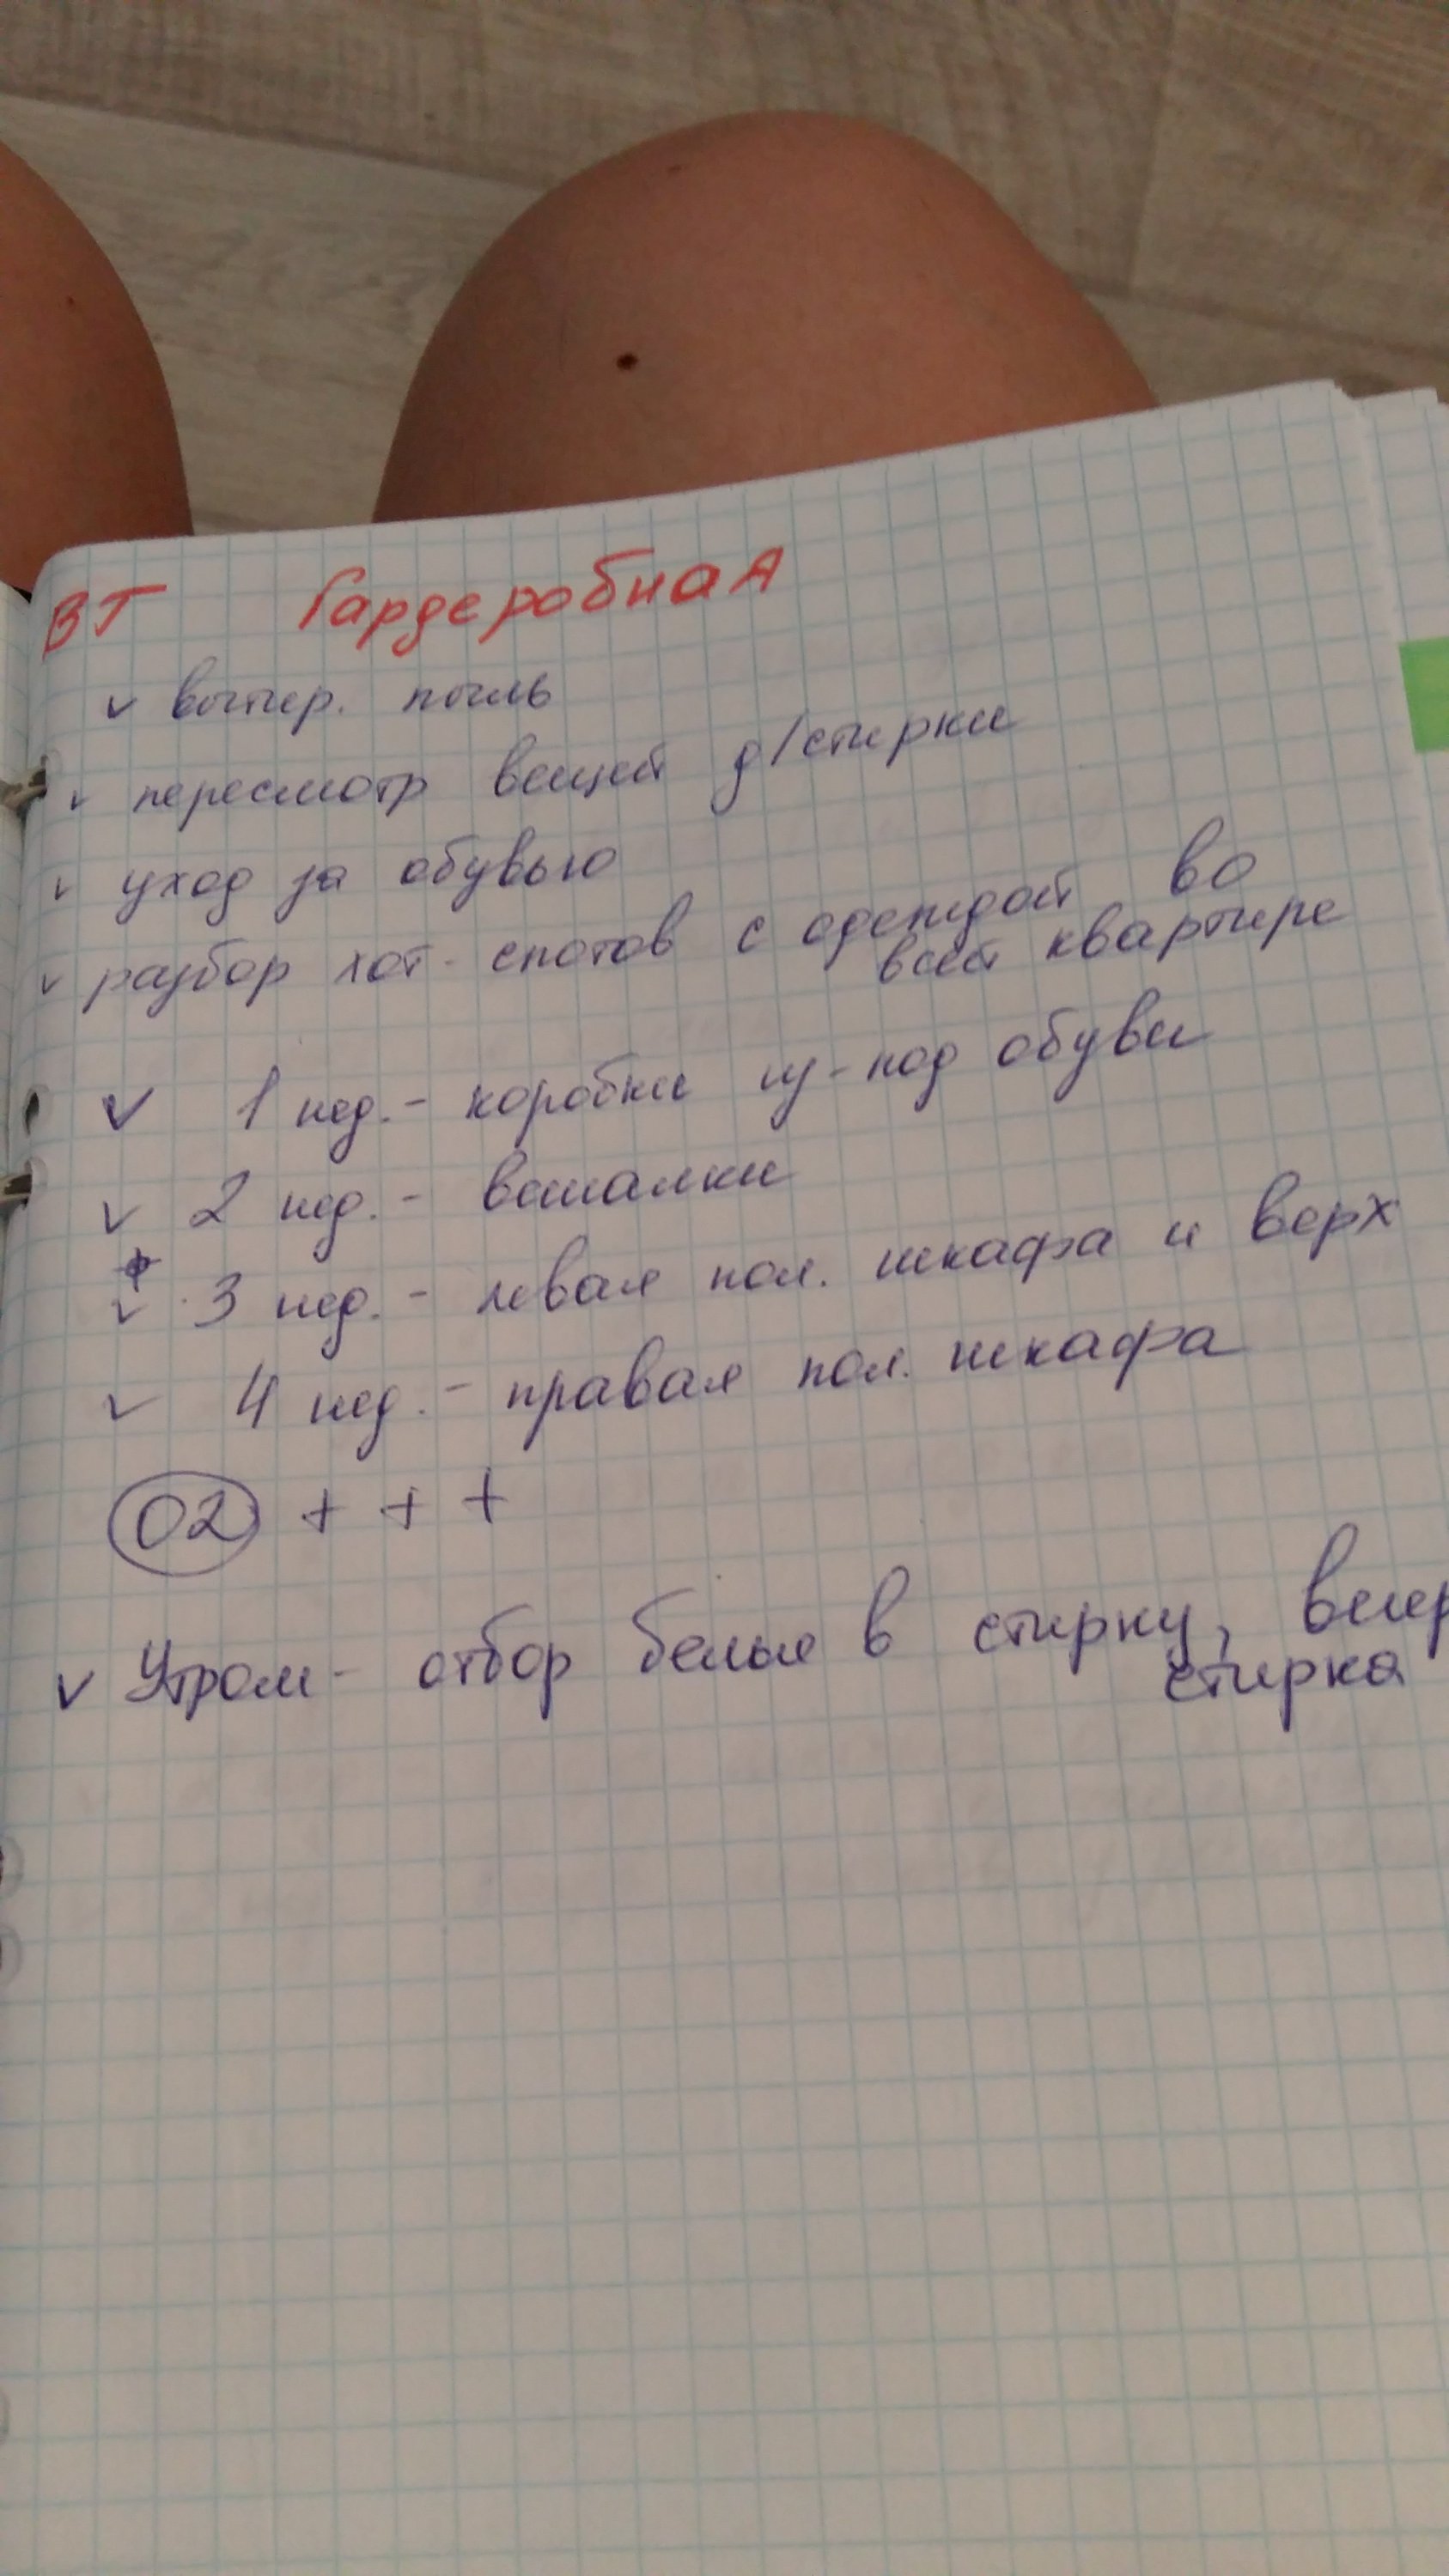 ВТ Гардеробная
✓ вытир. пыль
✓ пересмотр вещей д/стирки
✓ уход за обувью
✓ разбор хот-спотов с одеждой во
всей квартире
✓ 1 нед. - коробки из-под обуви
✓ 2 нед. - вешалки
✓ 3 нед. - левая пол. шкафа и верх
✓ 4 нед. - правая пол. шкафа
02 + + +
✓ Утром - отбор белья в стирку, вечер
стирка